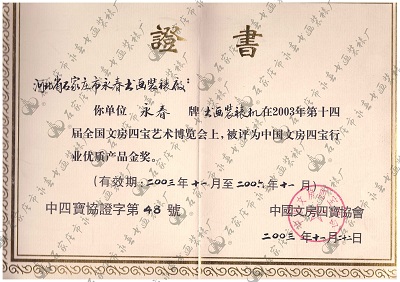 證書
河北省石家庄市永春书画装裱厰:
你单位 永春 牌书画装裱机在2003年第十四
届全国文房四宝艺术博览会上,被评为中国文房四宝行
业优质产品金奖。
(有效期:二00三年十一月至二00六年十一月)
中四寶協證字第48號 中國文房四寶協會
二00三年十一月二十二日